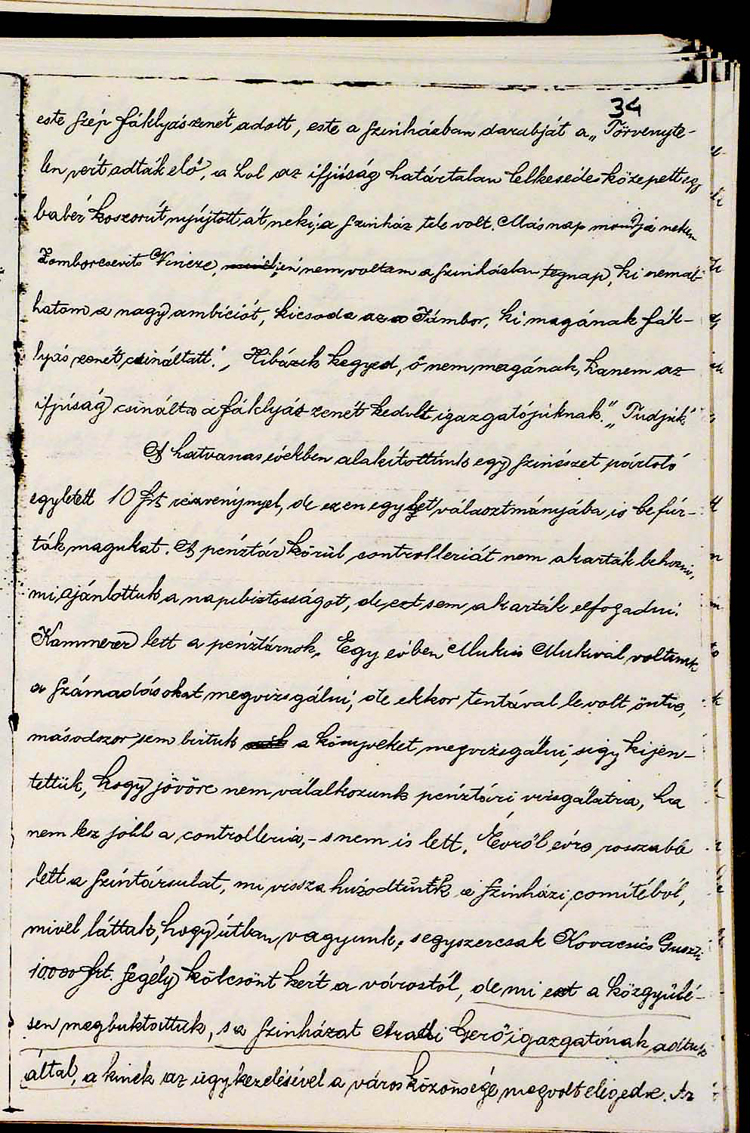 34
este szép fáklyászenét adott, este a szinházban darabját a „Törvényte-
len vért adták elő, a hol az ifjúság határtalan lelkesedés közepett egy
babér koszorút nyújtott át neki, a szinház tele volt. Másnap mondja nekem
Zomborcsevits Vincze, én nem voltam a szinházban tegnap, ki nem áll-
hatom a nagy ambiciót, kicsoda az a Jámbor, ki magának fák-
lyás zenét csináltatt." „Hibázik kegyed, ő nem magának, hanem az
ifjúság csinálta a fáklyás zenét kedvelt igazgatójúknak." „Tudjuk"
A hatvanas években alakítottunk egy szinészet pártoló
egyletett 10 frt részvénynyel, de ezen egylet választmányába is befúr-
ták magukat. A pénztár körül controlleriát nem akarták behozni,
mi ajánlottuk a napibiztosságot, de ezt sem akarták elfogadni.
Kammerer lett a pénztárnok. Egy évben Mukics Mukival voltunk
a számadásokat megvizsgálni, de ekkor tentával le volt öntve,
másodszor sem birtuk a könyveket megvizsgálni, s így kijen-
tettük, hogy jövőre nem válalkozunk pénztári vizsgálatra, ha
nem lesz jobb a controlleria, - s nem is lett. Évről évre rosszabb
lett a szintársulat, mi vissza húzodtunk a szinházi comitéból,
mivel láttuk, hogy útban vagyunk, s egyszercsak Kovacsics Guszti
10.000 frt. segély kölcsönt kért a várostól, de mi ezt a közgyülé-
sen megbuktattuk, s a szinházat Aradi Gerő igazgatónak adtuk
által, a kinek az ügykezelésével a város közönsége megvolt elégedve. Az